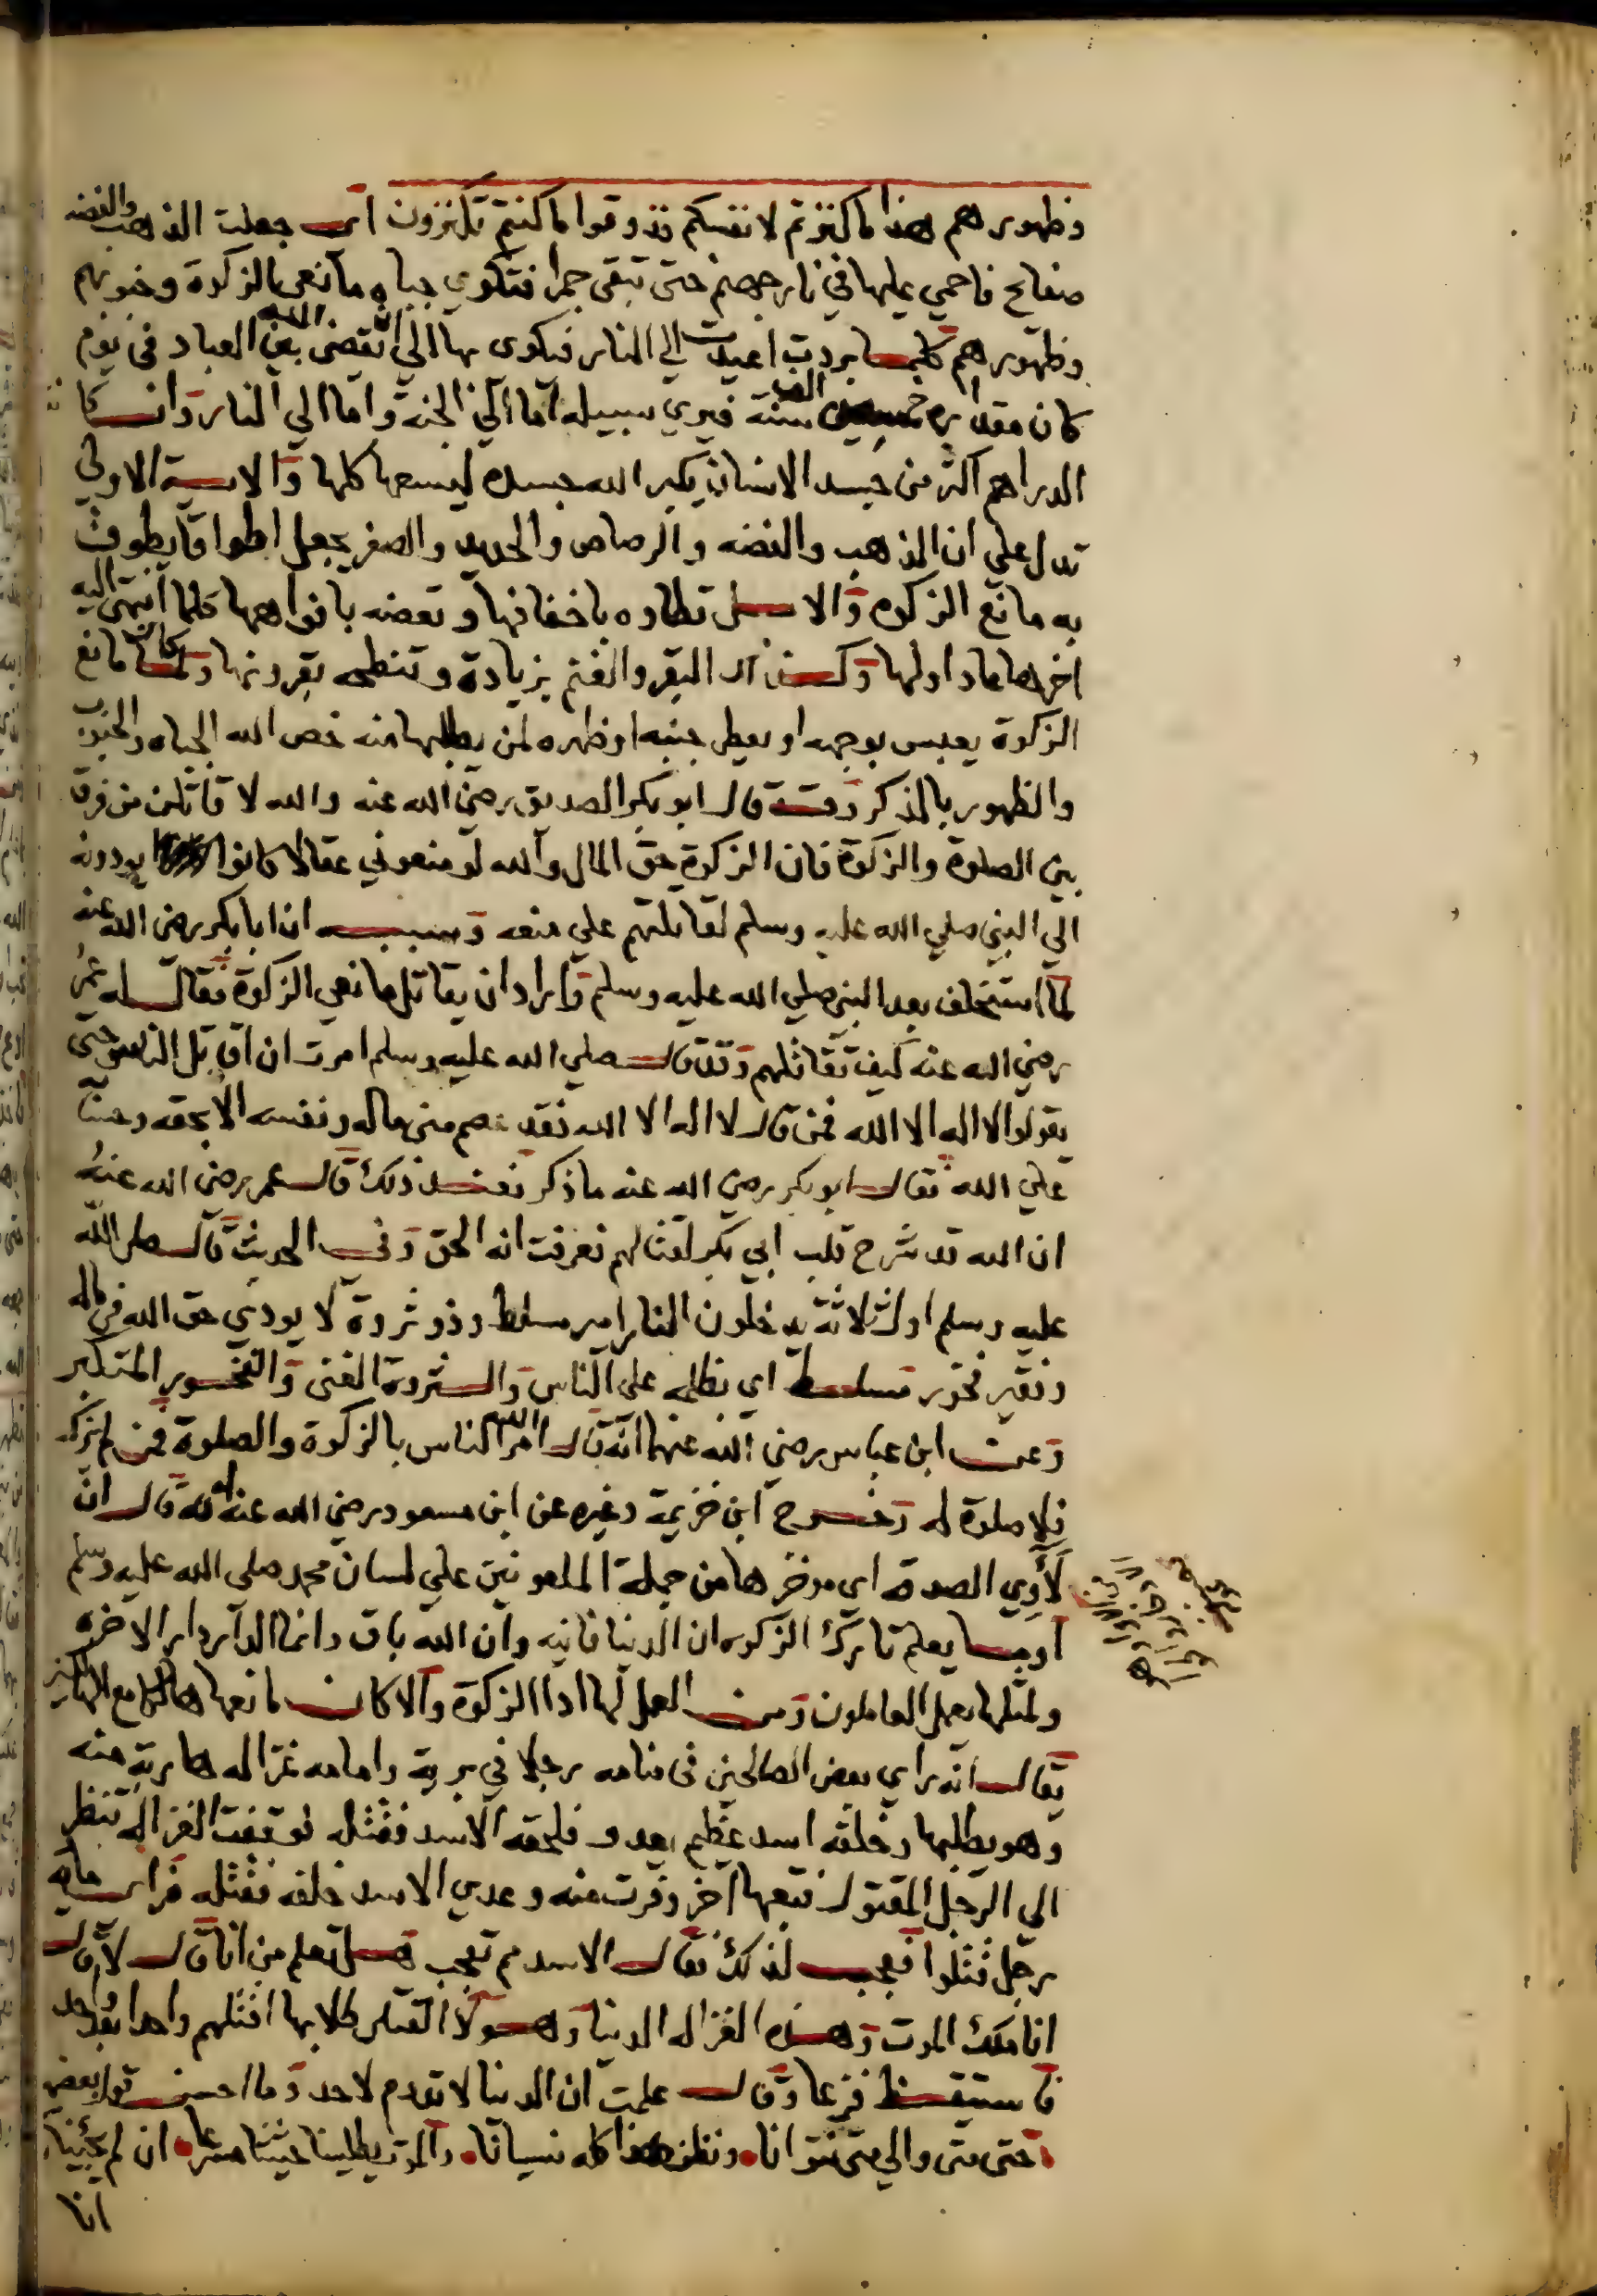 وظهورهم هذا ما كنزتم لانفسكم فذوقوا ما كنتم تكنزون اي جعلت الذهب والفضه
صفايح فاحمي عليها في نار جهنم حتى تبقى جمرا فتكوي جباه مانعي الزكوة وجنوبهم
وظهورهم كلما بردت اعيدت الي النار فيكوى بها الي ان يقضى الله بين العباد في يوم
كان مقداره خمسين الف سنة فيري سبيله اما الي الجنة واما الي النار وان كانت
الدراهم اكثر من جسد الانسان يكبر الله جسده ليسعها كلها والاية الاولي
تدل علي ان الذهب والفضه والرصاص والحديد والصفر يجعل اطواقا يطوق
به مانع الزكوه والابل تطاوه باخفافها وتعضه بافواهها كلما انتهى اليه
اخرها عاد اولها وكذا البقر والغنم بزيادة وتنطحه بقرونها ولما كان مانع
الزكوة يعبس بوجهه او يعطي جنبه او ظهره لمن يطلبها منه خص الله الجباه والجنوب
والظهور بالذكر وقد قال ابو بكر الصديق رضي الله عنه والله لاقاتلن من فرق
بين الصلوة والزكوة فان الزكوة حق المال والله لو منعوني عقالا كانوا يودونه
الي النبي صلي الله عليه وسلم لقاتلتهم علي منعه وسببه ان ابا بكر رضي الله عنه
لما استخلف بعد النبي صلي الله عليه وسلم واراد ان يقاتل مانعي الزكوة فقال له عمر
رضي الله عنه كيف تقاتلهم وقد قال صلي الله عليه وسلم امرت ان اقاتل الناس حتى
يقولوا لا اله الا الله فمن قال لا اله الا الله فقد عصم مني ماله ونفسه الا بحقه وحسابه
علي الله فقال ابو بكر رضي الله عنه ما ذكر فعند ذلك قال عمر رضي الله عنه
ان الله قد شرح قلب ابي بكر لقتالهم فعرفت انه الحق وفي الحديث قال صلي الله
عليه وسلم اول ثلاثة يدخلون النار امير مسلط وذو ثروة لا يودي حق الله في ماله
وفقير فخور مسلط اي بظلمه علي الناس والثروة الغنى والفخور المتكبر
وعن ابن عباس رضي الله عنهما انه قال امر الله الناس بالزكوة والصلوة فمن لم يزك
فلا صلوة له وخرج ابن خزيمة وغيره عن ابن مسعود رضي الله عنه انه قال ان
لاوي الصدقة اي موخرها من جملة الملعونين علي لسان محمد صلي الله عليه وسلم
اوما يعلم تارك الزكوه ان الدنيا فانيه وان الله باق وانما الدار دار الاخره
ولمثلها يعمل العاملون ومن العمل لها ادا الزكوة والا كان مانعها هالكا مع الهالكين
يقال انه راي بعض الصالحين في منامه رجلا في برية وامامه غزاله هاربة منه
وهو يطلبها وخلفه اسد عظيم يعدو فلحقه الاسد فقتله فوقفت الغزاله تنظر
الي الرجل المقتول فتبعها اخر وفرت منه وعدي الاسد خلفه فقتله فراي مايه
رجل قتلوا فعجب لذلك فقال الاسد مم تعجب هل تعلم من انا قال لا قال
انا ملك الموت وهذه الغزاله الدنيا وهولا القتلي طلابها اقتلهم واحدا بعد واحد
فاستيقظ فزعا وقال علمت ان الدنيا لا تدوم لاحد وما احسن قول بعضهم
حتى متى والي متى نتوانا ونظن هذا كله نسيانا والموت يطلبنا حثيثا مسرعا ان لم يجينا
انا